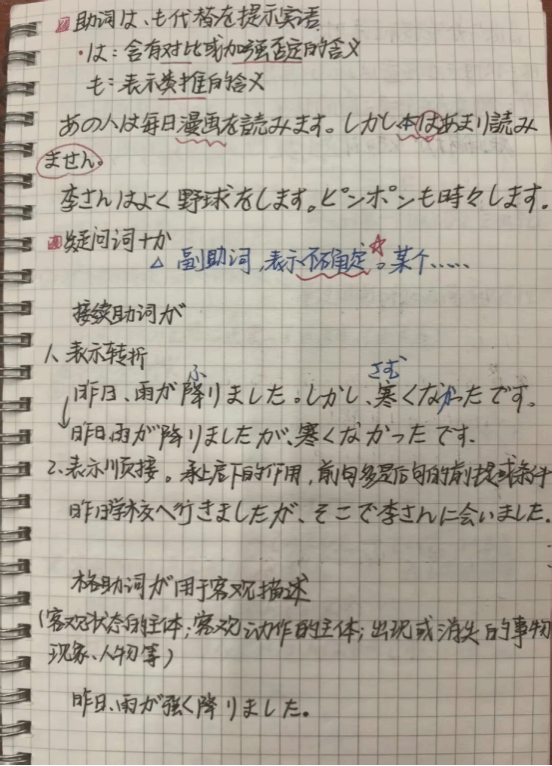 助词は、も代替を提示宾语
・は：含有对比或加强否定的含义
も：表示类推的含义
あの人は毎日漫画を読みます。しかし本はあまり読み
ません。
李さんはよく野球をします。ピンポンも時々します。
疑问词+か
△ 副助词，表示不确定。某个……
接续助词が
1、表示转折
ふ さむ
昨日、雨が降りました。しかし、寒くなかったです。
昨日、雨が降りましたが、寒くなかったです。
2、表示顺接。承上启下的作用，前句多是后句的前提或条件
昨日学校へ行きましたが、そこで李さんに会いました。
格助词が用于客观描述
（客观状态的主体；客观动作的主体；出现或消失的事物
现象、人物等）
昨日、雨が強く降りました。